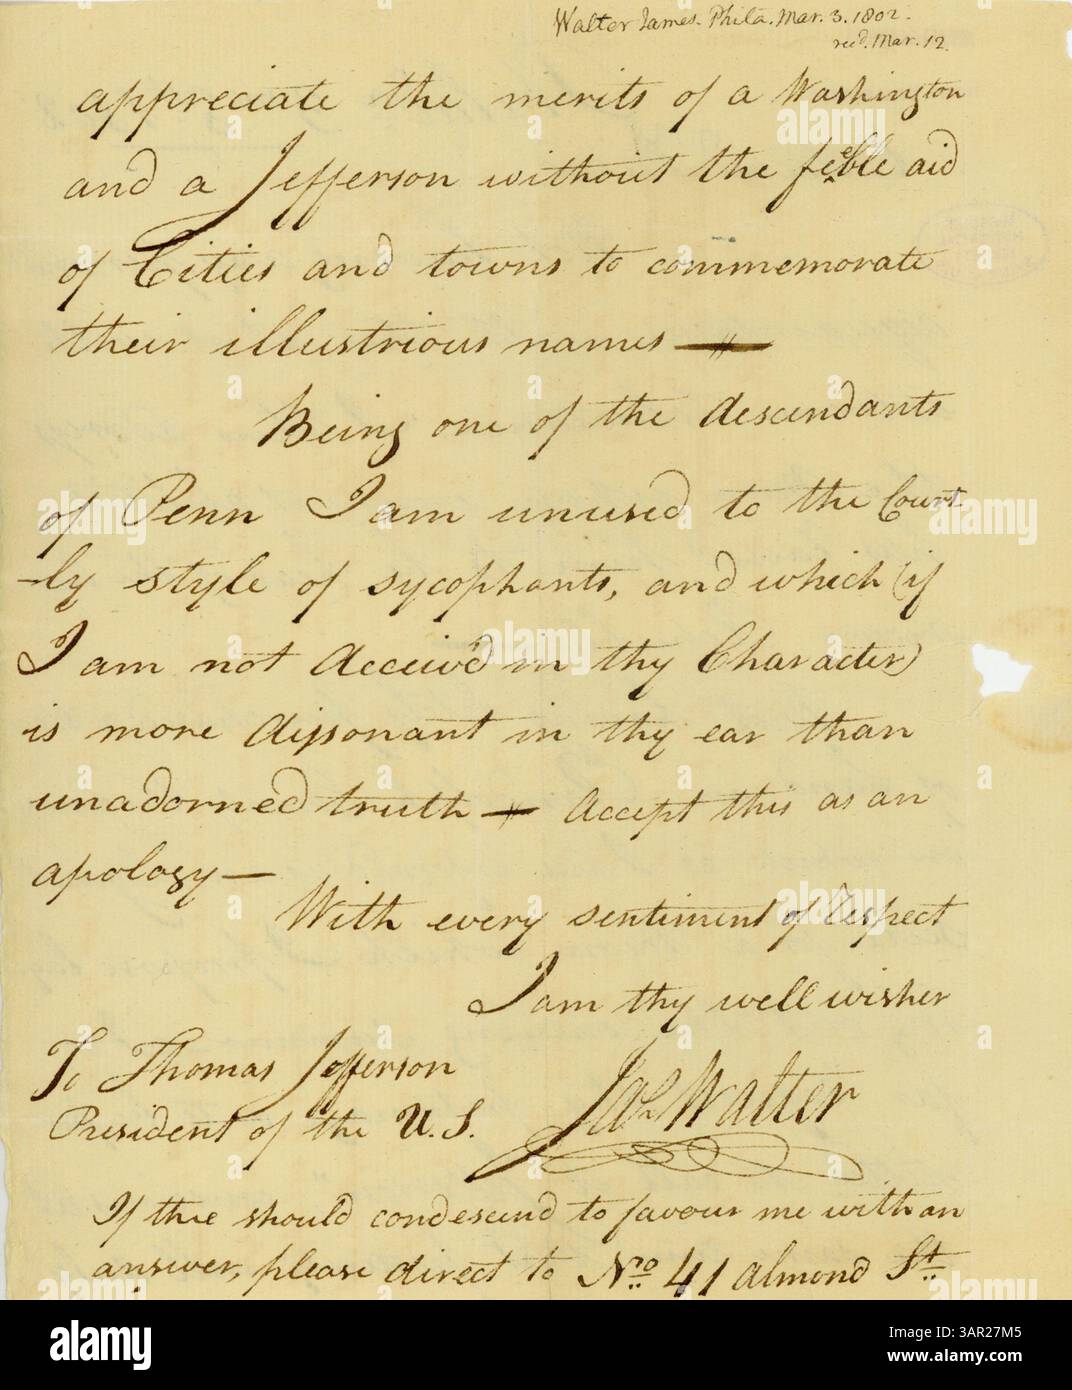 Walter James. Phila. Mar. 3. 1802.
recd. Mar. 12.
appreciate the merits of a Washington
and a Jefferson without the feeble aid
of Cities and towns to commemorate
their illustrious names —
Being one of the descendants
of Penn I am unused to the Court
-ly style of sycophants, and which (if
I am not deceiv'd in thy Character)
is more dissonant in thy ear than
unadorned truth — Accept this as an
apology —
With every sentiment of respect
I am thy well wisher
Jas Walter
To Thomas Jefferson
President of the U.S.
If thee should condescend to favour me with an
answer, please direct to No 41 Almond St
alamy
Image ID: 3AR27M5
www.alamy.com